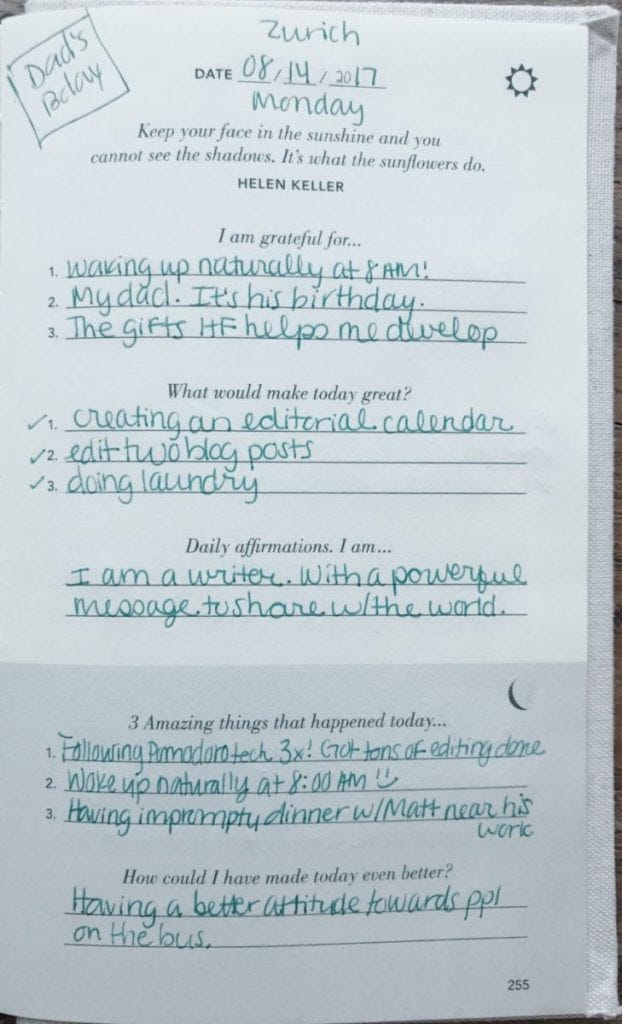 Zurich
Dad's
Bday
DATE 08/14/2017
Monday
Keep your face in the sunshine and you
cannot see the shadows. It's what the sunflowers do.
HELEN KELLER
I am grateful for...
1. waking up naturally at 8 AM!
2. My dad. It's his birthday.
3. The gifts HF helps me develop
What would make today great?
✓1. creating an editorial calendar
✓2. edit two blog posts
✓3. doing laundry
Daily affirmations. I am...
I am a writer. With a powerful
message to share w/the world.
3 Amazing things that happened today...
1. Following Pomodoro tech 3x! Got tons of editing done
2. Woke up naturally at 8:00 AM
3. Having imprompty dinner w/Matt near his
work
How could I have made today even better?
Having a better attitude towards ppl
on the bus.
255